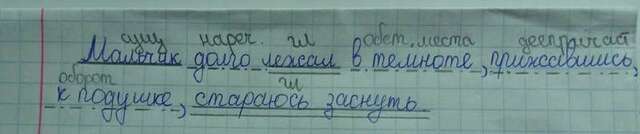 сущ нареч. гл обст. места дееприч
Мальчик долго лежал в темноте, прижавшись,
оборот гл
к подушке, стараюсь заснуть